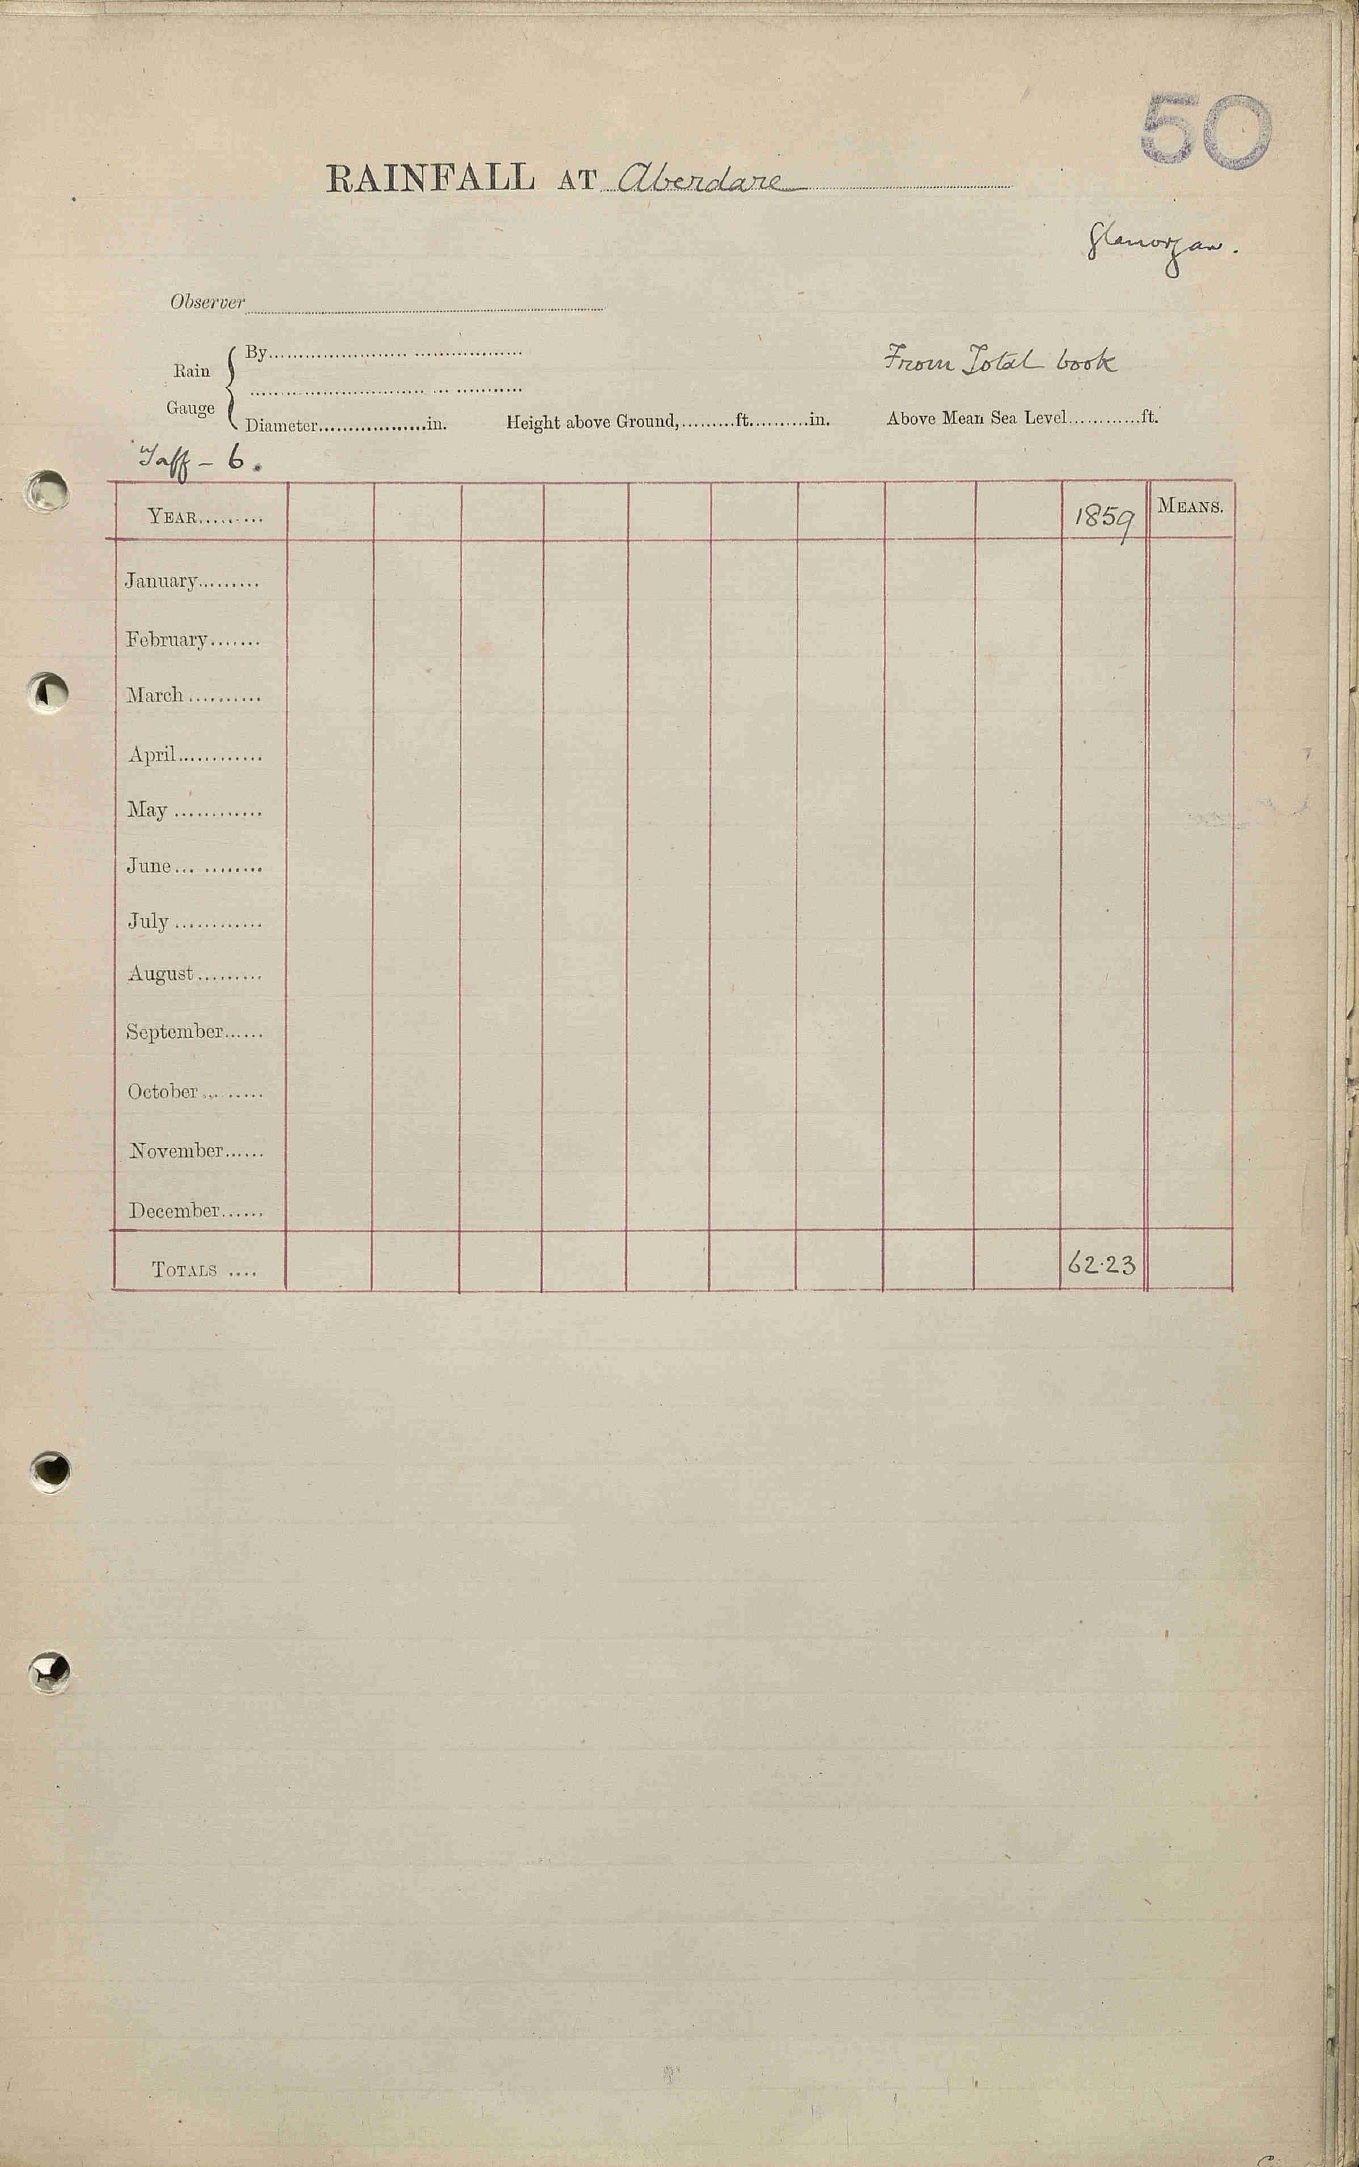 50
RAINFALL AT Aberdare
Glamorgan.
Observer
Rain Gauge
By
From Total book
Diameter in. Height above Ground, ft. in. Above Mean Sea Level ft.
Taff - 6.
YEAR 1859 MEANS.
January
February
March
April
May
June
July
August
September
October
November
December
TOTALS 62.23